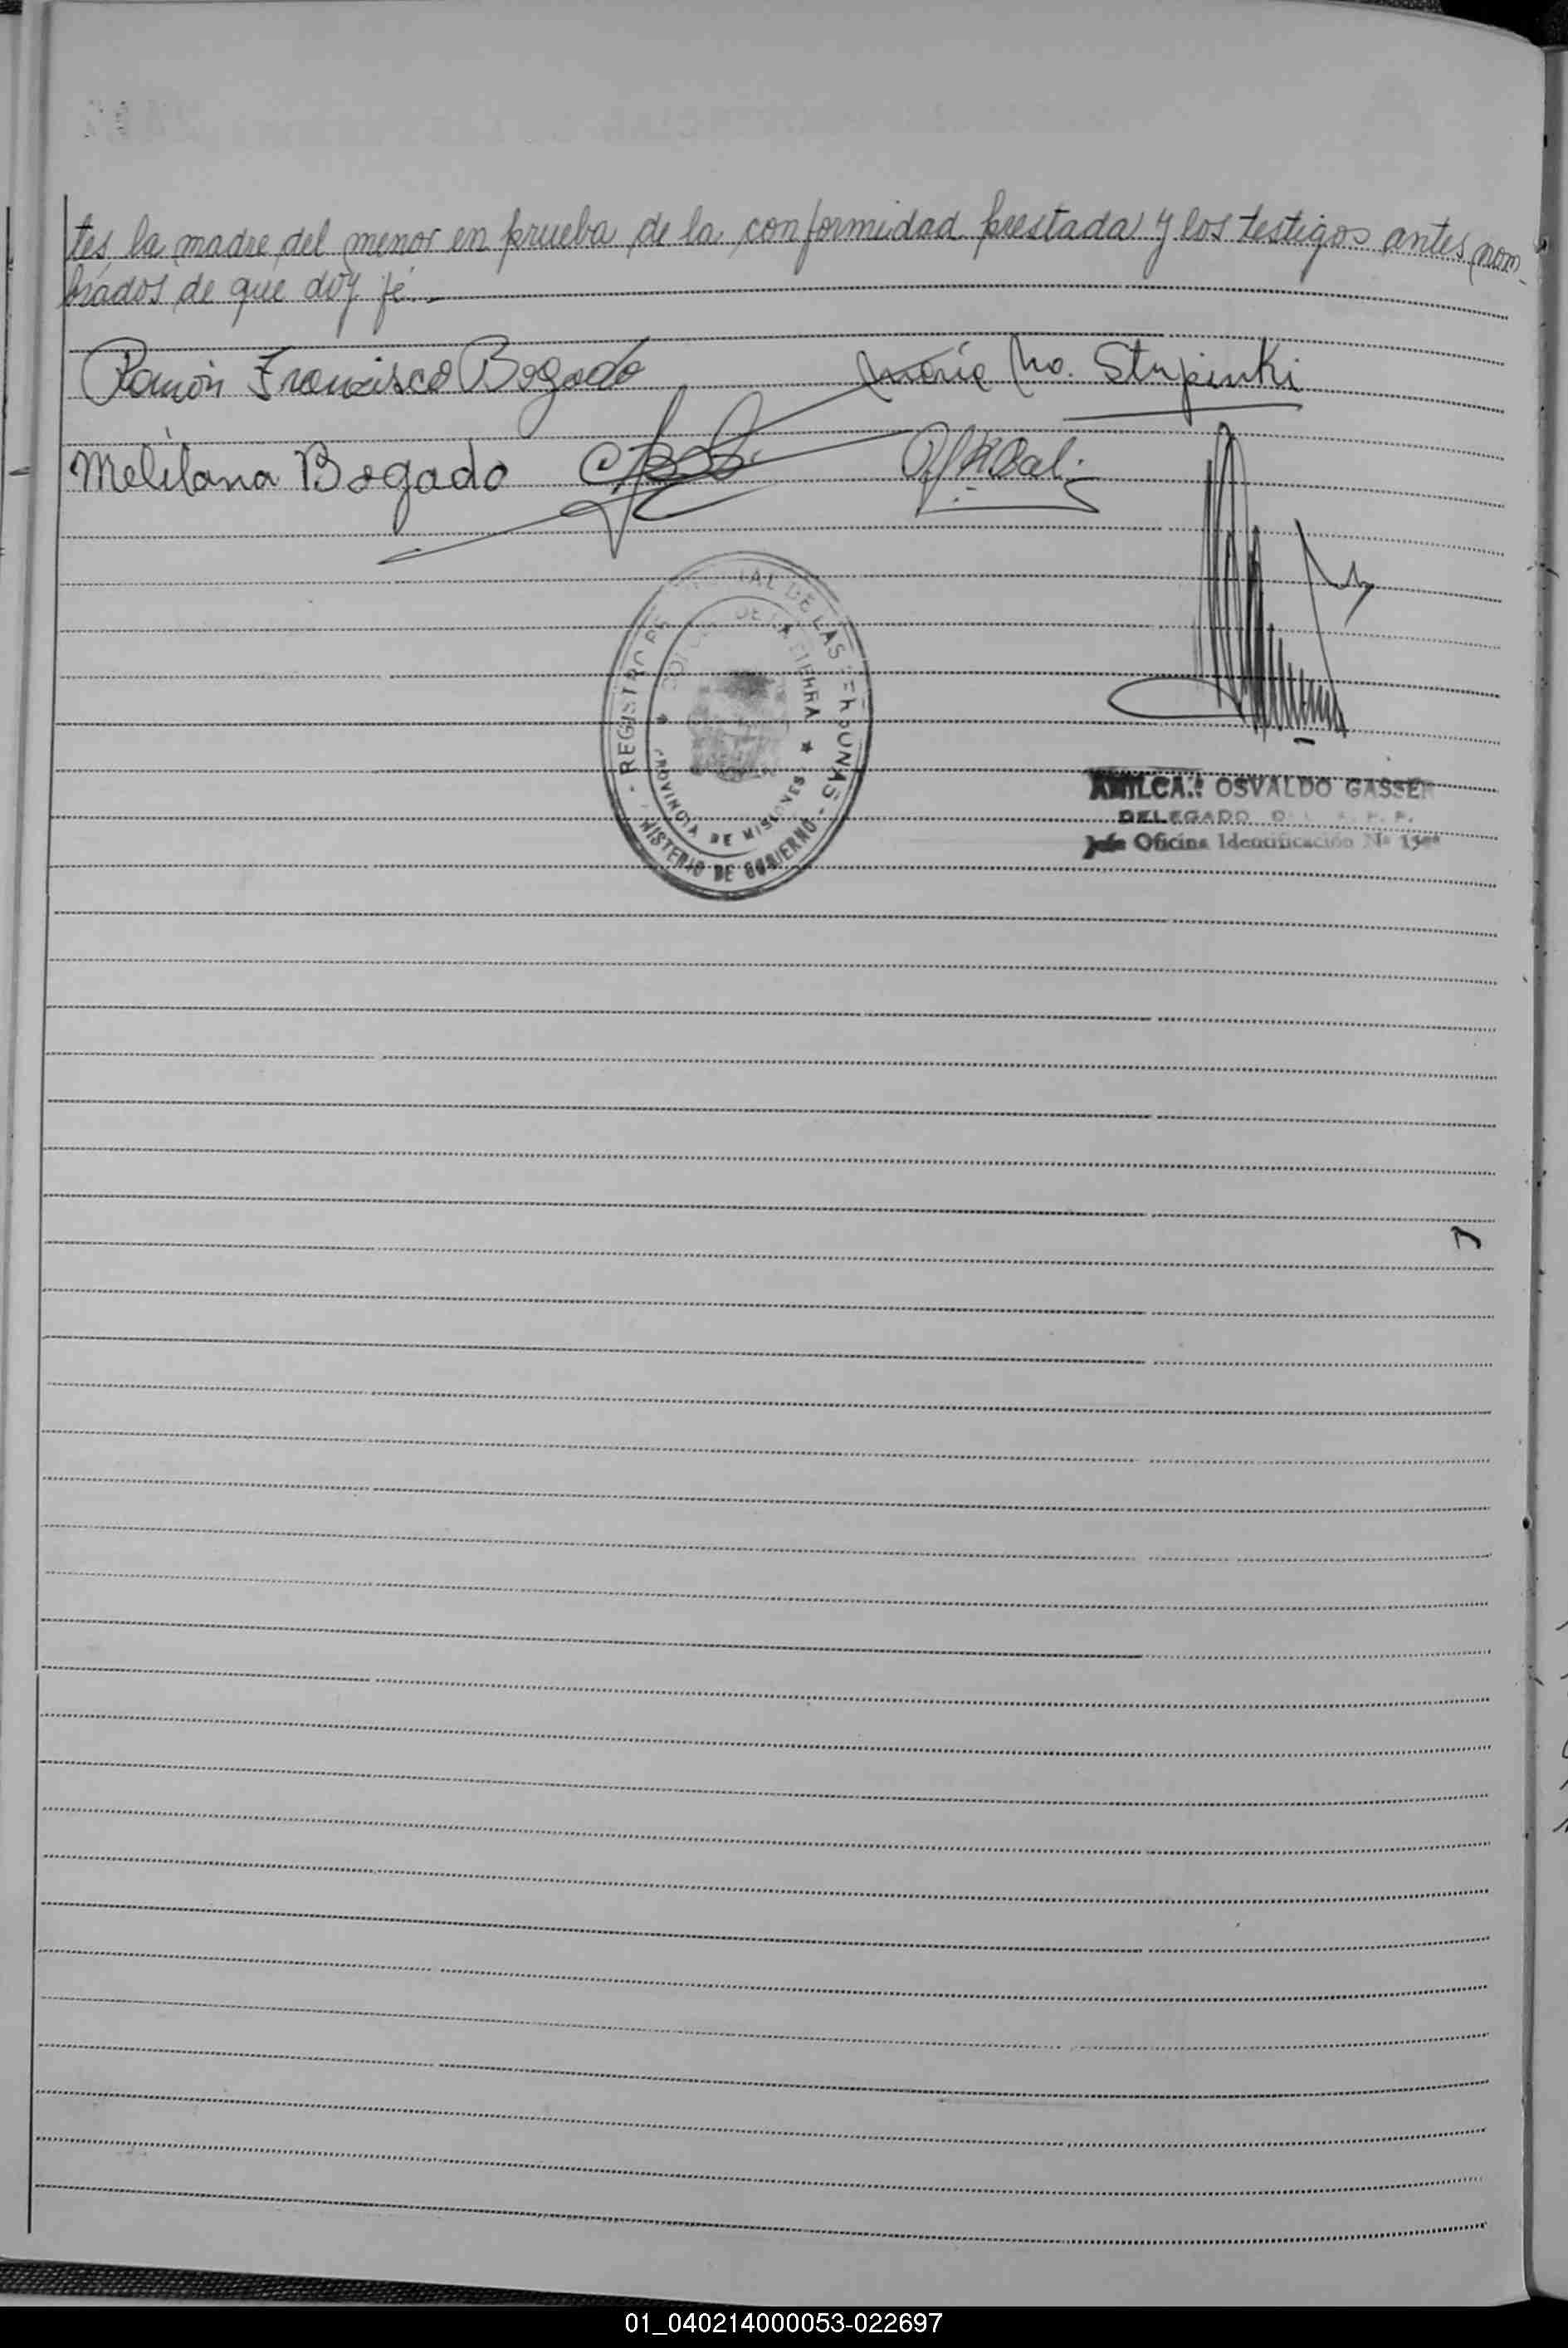 tes la madre del menor en prueba de la conformidad prestada y los testigos antes nom
brados de que doy fé.-
Ramón Francisco Bogado
María Stupinki
Melilana Bogado
- REGISTRO PROVINCIAL DE LAS PERSONAS -
MINISTERIO DE GOBIERNO
DE LA SIERRA
PROVINCIA DE MISIONES
AMILCAR OSVALDO GASSER
DELEGADO DEL R. P. P.
Jefe Oficina Identificación Nº
01_040214000053-022697